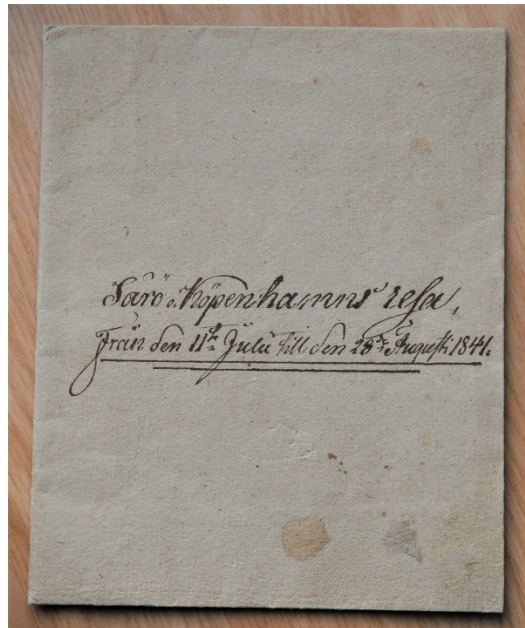 Särö o. Köpenhamns resa,
Från den 11te Julii till den 28de Augusti 1841.